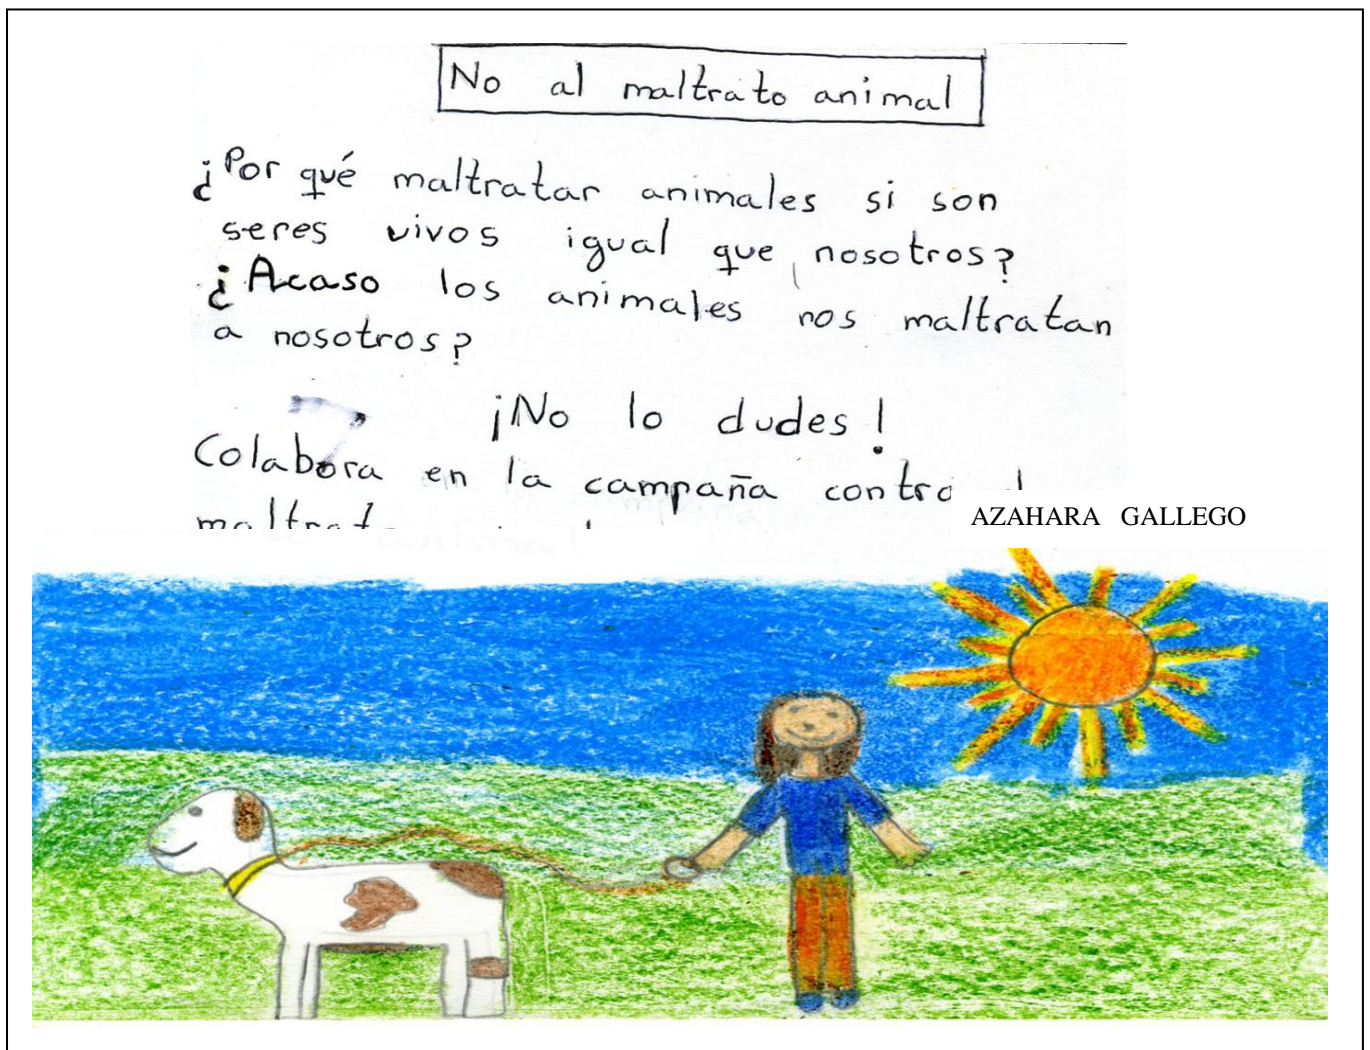 No al maltrato animal
¿Por qué maltratar animales si son
seres vivos igual que nosotros?
¿Acaso los animales nos maltratan
a nosotros?
¡No lo dudes!
Colabora en la campaña contra
AZAHARA GALLEGO